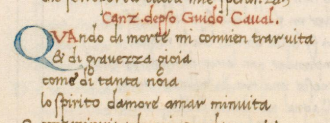 Canz. depso. Guido Caual.
QVAndo di morte mi conuien trar uita
& di grauezza gioia
come di tanta noia
lo spirito damore amar minuita